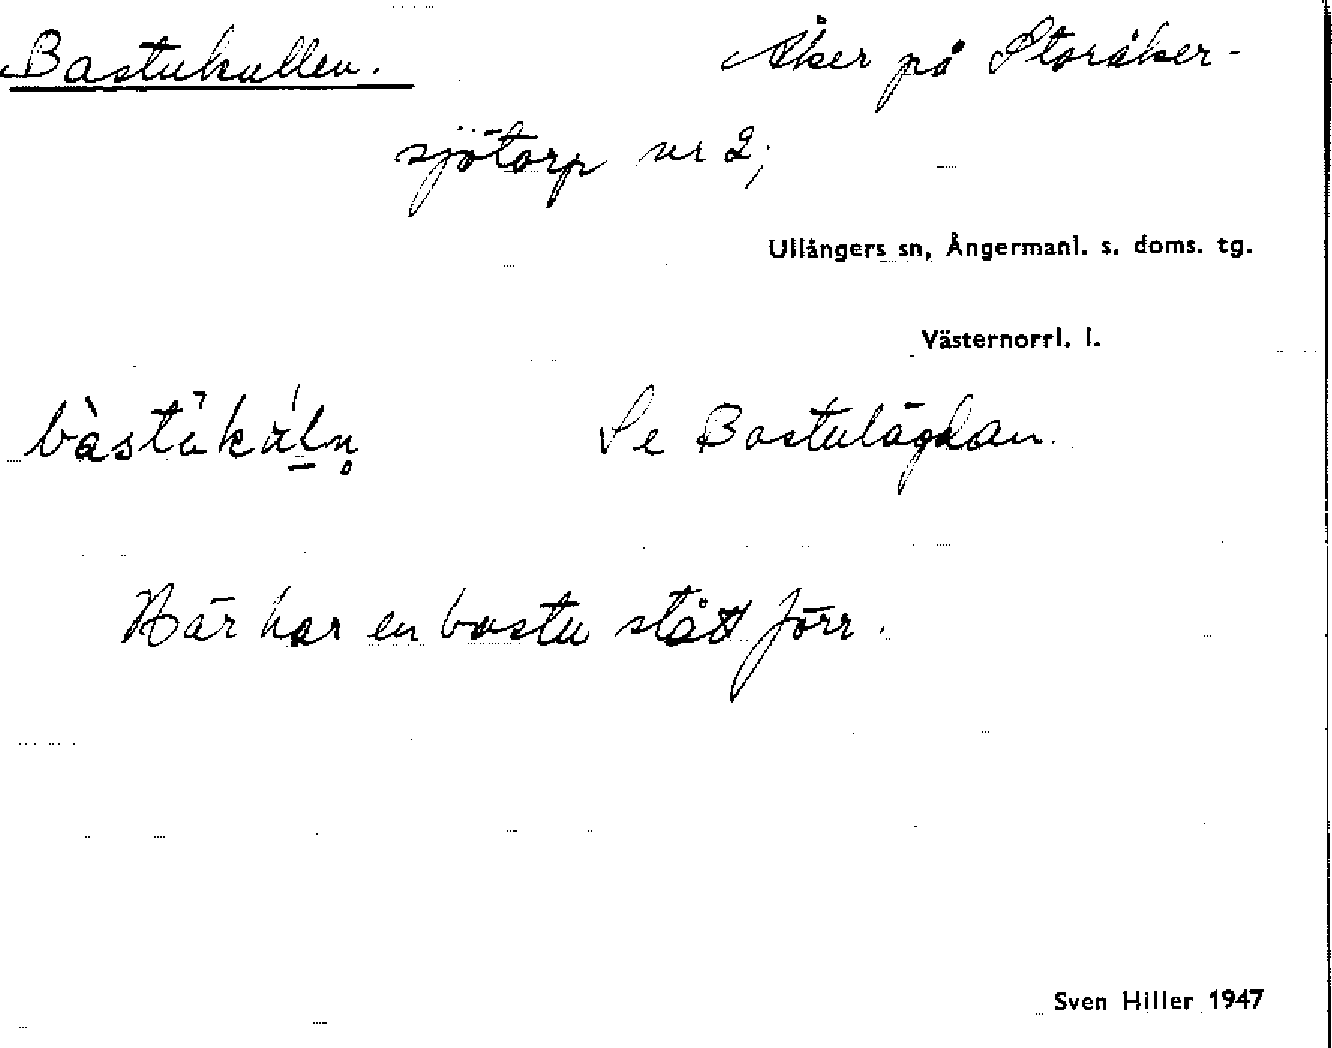 Bastukullen. Åker på Storåker-
sjötorp nr 2;
Ullångers sn, Ångermanl. s. doms. tg.
Västernorrl. l.
Se Bastulägdan.
Här har en bastu stått förr.
Sven Hiller 1947